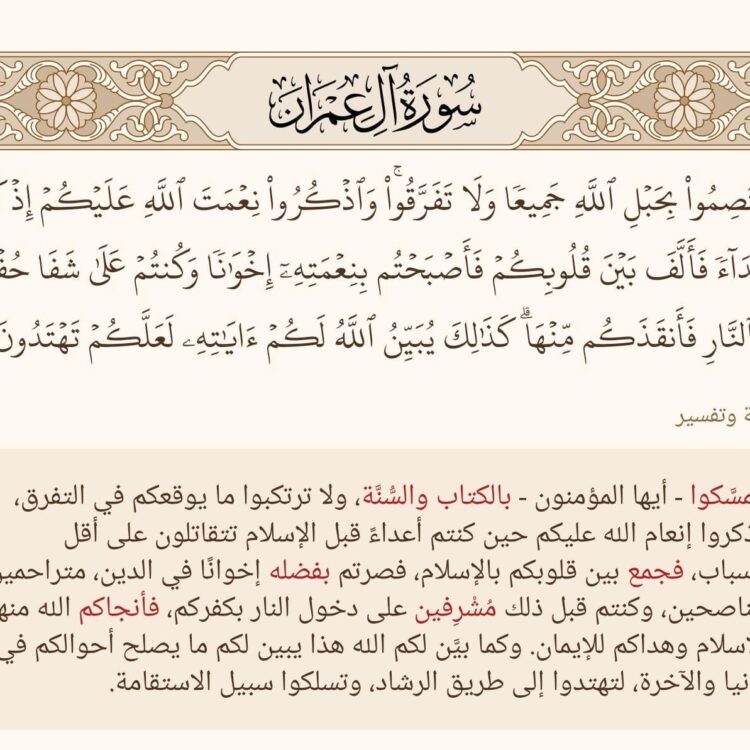 سُورَةُ آلِ عِمْرَانَ
تَصِمُوا۟ بِحَبْلِ ٱللَّهِ جَمِيعًا وَلَا تَفَرَّقُوا۟ۚ وَٱذْكُرُوا۟ نِعْمَتَ ٱللَّهِ عَلَيْكُمْ إِذْ
دَآءً فَأَلَّفَ بَيْنَ قُلُوبِكُمْ فَأَصْبَحْتُم بِنِعْمَتِهِۦٓ إِخْوَٰنًا وَكُنتُمْ عَلَىٰ شَفَا حُفْ
ٱلنَّارِ فَأَنقَذَكُم مِّنْهَاۗ كَذَٰلِكَ يُبَيِّنُ ٱللَّهُ لَكُمْ ءَايَٰتِهِۦ لَعَلَّكُمْ تَهْتَدُونَ
ة وتفسير
مسَّكوا - أيها المؤمنون - بالكتاب والسُّنَّة، ولا ترتكبوا ما يوقعكم في التفرق،
ذكروا إنعام الله عليكم حين كنتم أعداءً قبل الإسلام تتقاتلون على أقل
سباب، فجمع بين قلوبكم بالإسلام، فصرتم بفضله إخوانًا في الدين، متراحمين
ناصحين، وكنتم قبل ذلك مُشْرِفين على دخول النار بكفركم، فأنجاكم الله منها
لإسلام وهداكم للإيمان. وكما بيَّن لكم الله هذا يبين لكم ما يصلح أحوالكم في
نيا والآخرة، لتهتدوا إلى طريق الرشاد، وتسلكوا سبيل الاستقامة.